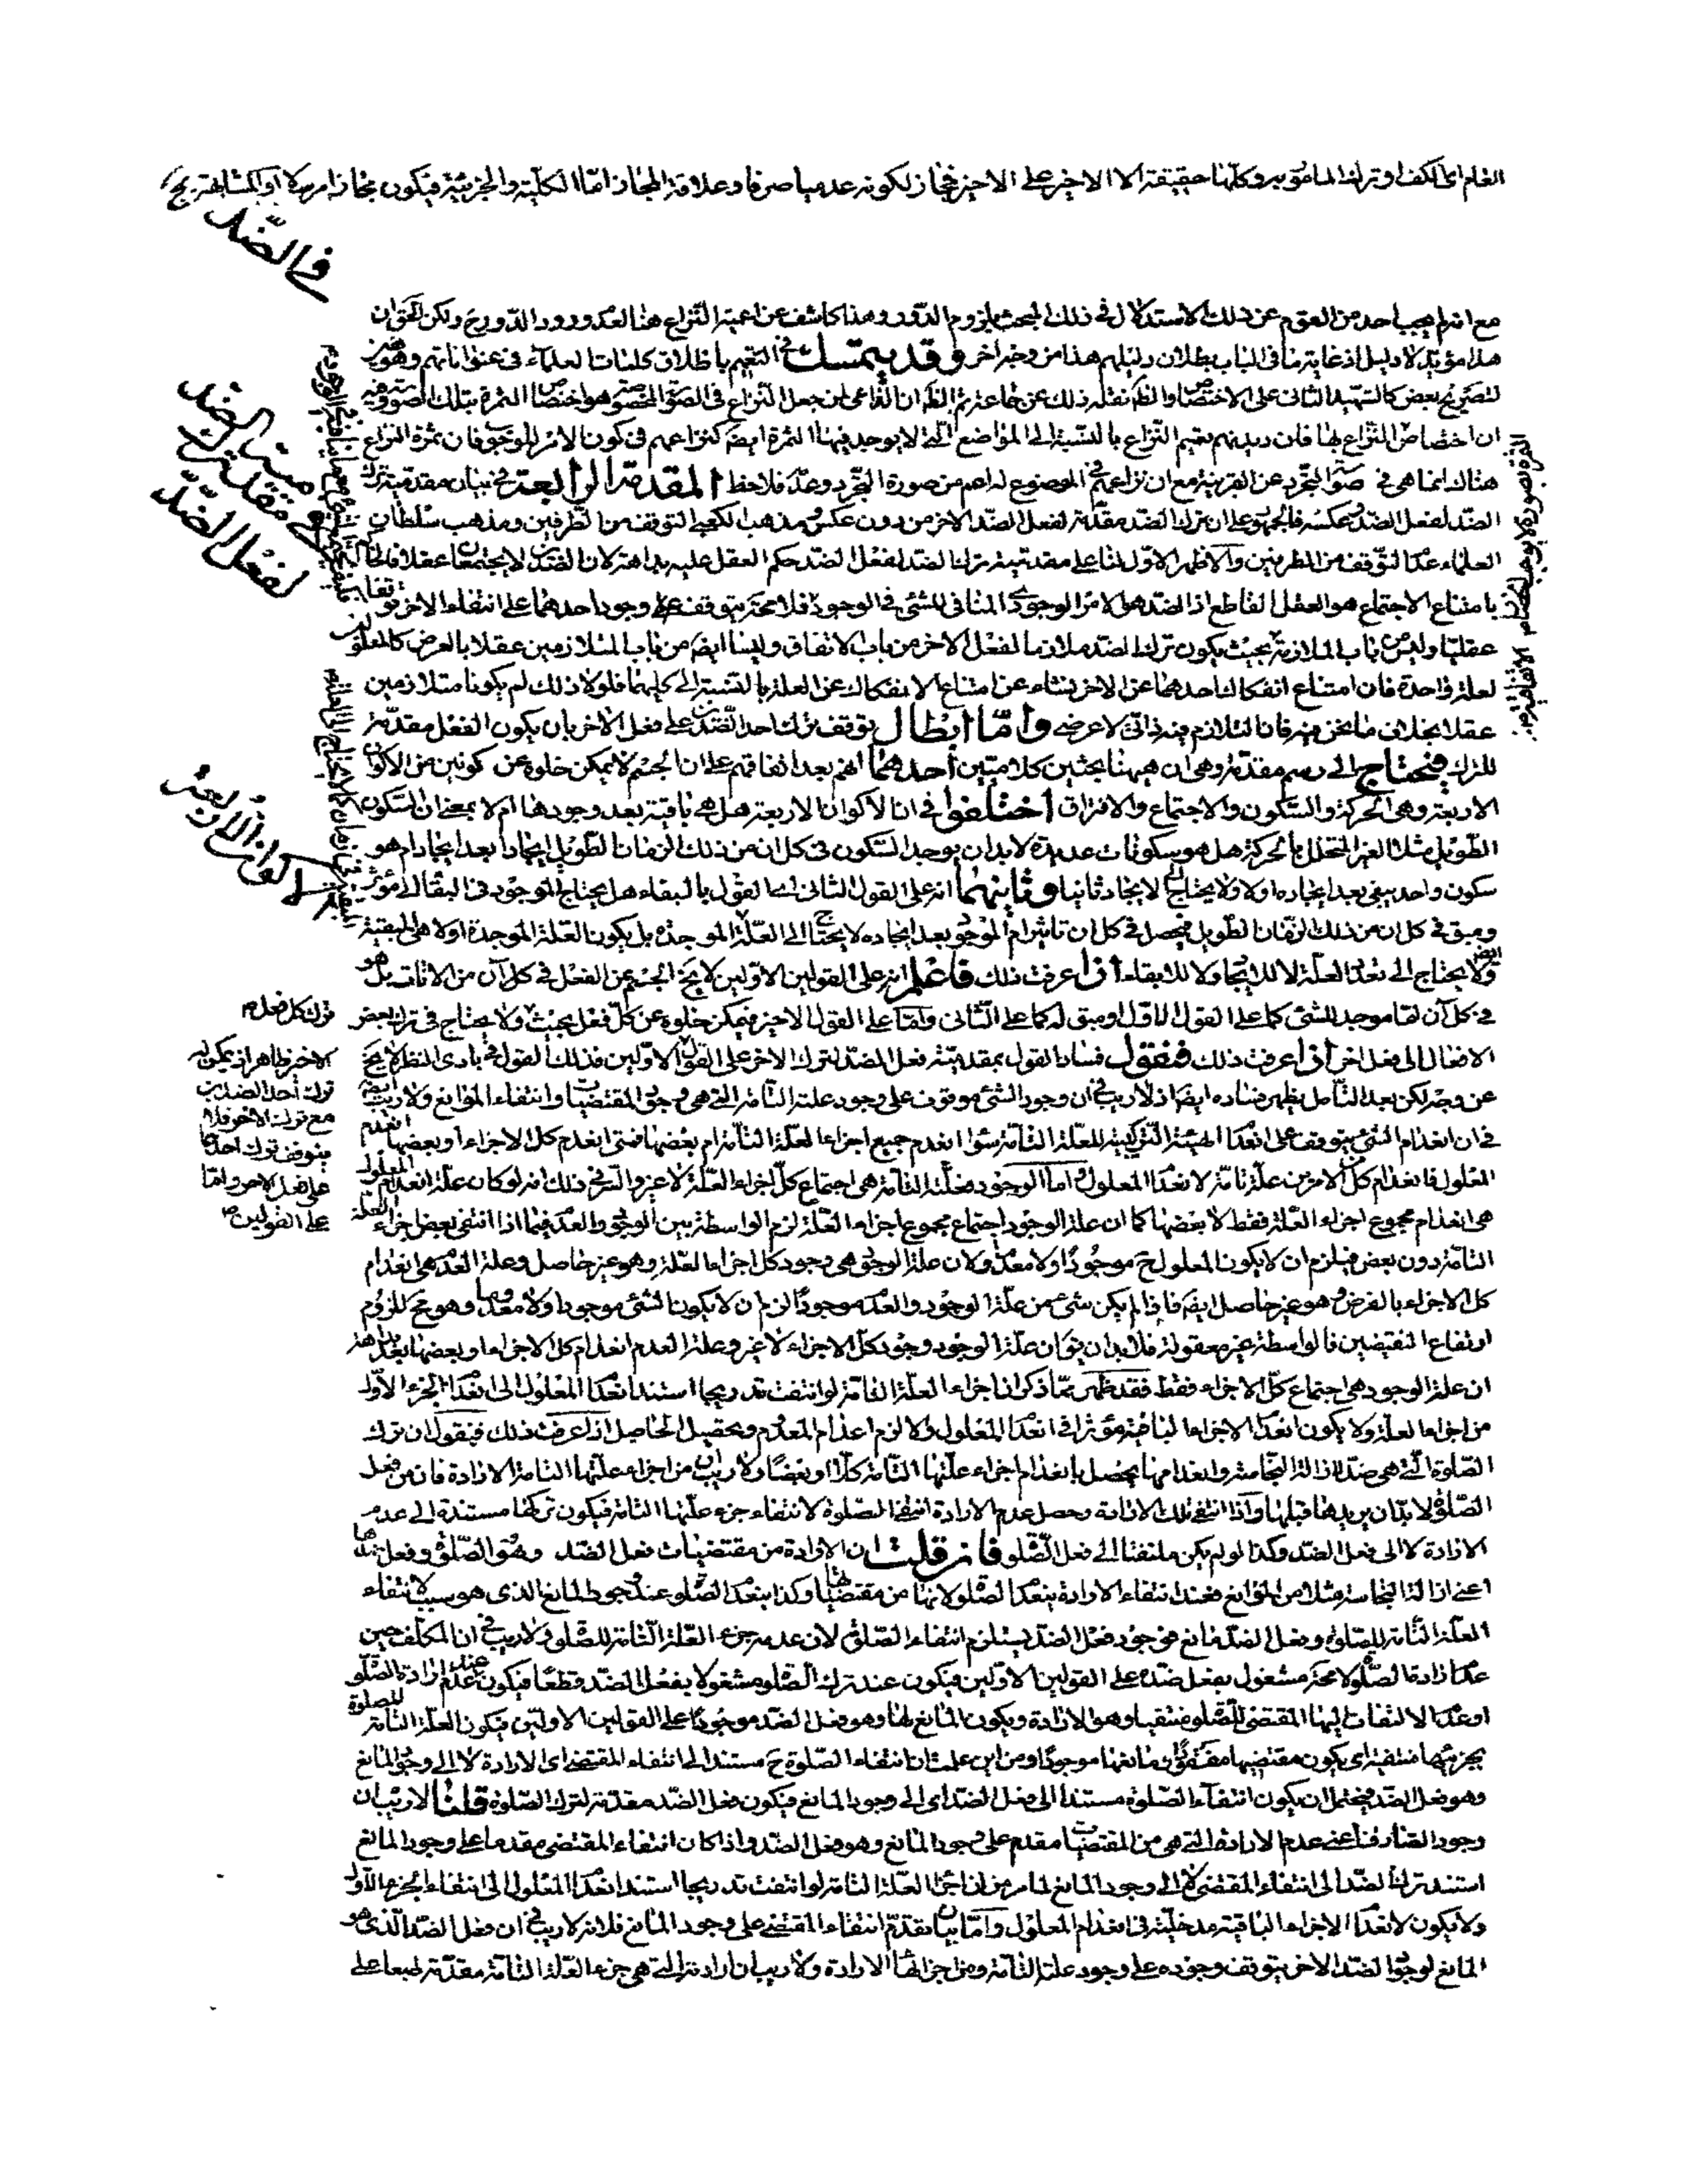 العام اى الكف او ترك المأمور به وكلها حقيقة الا الاخير على الاخير فمجاز لكونه عدميا صرفا وعلاقة المجاز اما الكلية والجزئية فيكون مجازا مرسلا او المشابهة
في الضد
مع انه لم يجب احد من القوم عن ذلك الاستدلال في ذلك المبحث بلزوم الدور وهذا كاشف عن اعمية النزاع هنا لعدم ورود الدور ح ولكن الحق ان
هذا مؤيد لا دليل اذ غاية ما في الباب بطلان دليلهم هذا من وجه اخر وقد يتمسك في التعميم باطلاق كلمات العلماء في عنواناتهم وهو
لتصريح بعض كالشهيد الثاني على الاختصاص والظ نقله ذلك عن جماعة ثم الظ ان الداعي لمن جعل النزاع في الصورة المخصوصة هو اختصاص الثمرة بتلك الصورة وفيه
ان اختصاص النزاع بها فان ديدنهم تعميم النزاع بالنسبة الى المواضع التي لا يوجد فيها الثمرة ايضا كنزاعهم في كون الامر للوجوب فان ثمرة النزاع
هناك انما هي في صورة التجرد عن القرينة مع ان نزاعهم في الموضوع له اعم من صورة التجرد وعدمه فلاحظ المقدمة الرابعة في بيان مقدمية ترك
الضد لفعل الضد وعكسه فالجمهور على ان ترك الضد مقدمة لفعل الضد الاخر من دون عكس ومذهب الكعبي التوقف من الطرفين ومذهب سلطان
العلماء عدم التوقف من الطرفين والاظهر الاول لنا على مقدمية ترك الضد لفعل الضد حكم العقل عليه بداهة لان الضدين لا يجتمعان عقلا فالحاكم
بامتناع الاجتماع هو العقل القاطع اذ الضد هو الامر الوجودي المنافي للشئ في الوجود فلا محة يتوقف وجود احدهما على انتفاء الاخر توقفا
عقليا وليس من باب الملازمة بحيث يكون ترك الضد ملازما لفعل الاخر من باب الاتفاق وليسا ايضا من باب المتلازمين عقلا بالعرض كالمعلولين
لعلة واحدة فان امتناع انفكاك احدهما عن الاخر نشاء عن امتناع الانفكاك عن العلة بالنسبة الى كليهما فلولا ذلك لم يكونا متلازمين
عقلا بخلاف ما نحن فيه فان التلازم فيه ذاتي لا عرضي واما ابطال توقف ترك احد الضدين على فعل الاخر بان يكون الفعل مقدمة
للترك فيحتاج الى رسم مقدمة وهي ان هيهنا بحثين كلاميين احدهما انهم بعد اتفاقهم على ان الجسم لا يمكن خلوه عن كونين من الاكوان
الاربعة وهي الحركة والسكون والاجتماع والافتراق اختلفوا في ان الاكوان الاربعة هل هي باقية بعد وجودها ام لا بمعنى ان السكون
الطويل مثلا الغير المتخلل بالحركة هل هو سكونات عديدة لا بد ان يوجد السكون في كل ان من ذلك الزمان الطويل ايجادا بعد ايجاد ام هو
سكون واحد يبقى بعد ايجاده اولا ولا يحتاج الى الايجاد ثانيا وثانيهما انه على القول الثاني اى القول بالبقاء هل يحتاج الموجود في البقاء الى مؤثر
ومبق في كل ان من ذلك الزمان الطويل فيحصل في كل ان تأثير ام الموجود بعد ايجاده لا يحتاج الى العلة الموجدة بل يكون العلة الموجدة اولا هي المبقية
ولا يحتاج الى تعدد العلة لا للايجاد ولا للابقاء اذا عرفت ذلك فاعلم انه على القولين الاولين لا يخ الجسم عن الفعل في كل آن من الآنات بل هو
في كل آن اما موجد للشئ كما على القول الاول او مبق له كما على الثاني واما على القول الاخير فيمكن خلوه عن كل فعل بحيث ولا يحتاج في ترك بعض
الافعال الى فعل اخر اذا عرفت ذلك فنقول فساد القول بمقدمية فعل الضد لترك الاخر على القول الاخير ظاهر اذ يمكن له
ترك احد الضدين
مع ترك الاخر فلا
يتوقف ترك احدهما
على فعل الاخر واما
على القولين
الاولين فذلك القول في بادى النظر لا يخ
عن وجه لكن بعد التأمل يظهر فساده ايضا اذ لا ريب في ان وجود الشئ موقوف على وجود علته التامة التي هي وجود المقتضيات وانتفاء الموانع ولا ريب ايضا
في ان انعدام الشئ يتوقف على انعدام الهيئة التركيبية للعلة التامة سواء انعدم جميع اجزاء العلة التامة ام بعضها فمتى انعدم كل الاجزاء او بعضها انعدم
المعلول فانعدام كل الامرين علة تامة لانعدام المعلول واما الوجود فعلته التامة هي اجتماع كل اجزاء العلة لا غير والسر في ذلك انه لو كان علة انعدام المعلول
هي انعدام مجموع اجزاء العلة فقط لا بعضها كما ان علة الوجود اجتماع مجموع اجزاء العلة لزم الواسطة بين الوجود والعدم فيما اذا انتفى بعض اجزاء العلة
التامة دون بعض فيلزم ان لا يكون المعلول ح موجودا ولا معدوما لان علة الوجود هي وجود كل اجزاء العلة وهو غير حاصل وعلة العدم هي انعدام
كل الاجزاء بالفرض وهو غير حاصل ايضا فاذا لم يكن شئ من علة الوجود والعدم موجودا لزم ان لا يكون الشئ موجودا ولا معدوما وهو مح للزوم
ارتفاع النقيضين فالواسطة غير معقولة فلا بد ان يق ان علة الوجود وجود كل الاجزاء لا غير وعلة العدم انعدام كل الاجزاء او بعضها
ان علة الوجود هي اجتماع كل الاجزاء فقط فقد ظهر مما ذكرنا ان اجزاء العلة التامة لو انتفت تدريجا استند انعدام المعلول الى انعدام الجزء الاول
من اجزاء العلة ولا يكون انعدام الاجزاء الباقية مؤثرا في انعدام المعلول والا لزم اعدام المعدوم وتحصيل الحاصل اذا عرفت ذلك فنقول ان ترك
الصلوة التي هي ضد لازالة النجاسة وانعدامها يحصل بانعدام اجزاء علتها التامة كلا او بعضا ولا ريب ان من اجزاء علتها التامة الارادة فان من فعل
الصلوة لا بد ان يريدها قبلها واذا انتفى تلك الارادة وحصل عدم الارادة انتفى الصلوة لانتفاء جزء علتها التامة فيكون تركها مستندة الى عدم
الارادة لا الى فعل الضد وكذا لو لم يكن ملتفتا الى فعل الصلوة فان قلت ان الارادة من مقتضيات فعل الضد وهو الصلوة وفعل ضدها
اعني ازالة النجاسة مثلا من الموانع فعند انتفاء الارادة ينعدم الصلوة لانها من مقتضياتها وكذا ينعدم الصلوة عند وجود المانع الذى هو سبب لانتفاء
العلة التامة للصلوة وفعل الضد مانع فوجود فعل الضد يستلزم انتفاء الصلوة لان عدمه جزء العلة التامة للصلوة ولا ريب في ان المكلف حين
عدم ارادة الصلوة لا محة مشغول بفعل ضده على القولين الاولين فيكون عند ترك الصلوة مشغولا بفعل الضد قطعا فيكون عند عدم ارادة الصلوة
او عدم الالتفات اليها المقتضي للصلوة منتفيا وهو الارادة ويكون المانع لها وهو فعل الضد موجودا على القولين الاولين فيكون العلة التامة للصلوة
بجزئيها منتفية اى يكون مقتضيها مفقودا ومانعها موجودا ومن اين علمت ان انتفاء الصلوة ح مستند الى انتفاء المقتضي اى الارادة لا الى وجود المانع
وهو فعل الضد فيحتمل ان يكون انتفاء الصلوة مستندا الى فعل الضد اى الى وجود المانع فيكون فعل الضد مقدمة لترك الصلوة قلنا لا ريب ان
وجود الصارف اعني عدم الارادة التي هي من المقتضيات مقدم على وجود المانع وهو فعل الضد واذا كان انتفاء المقتضي مقدما على وجود المانع
استند ترك الضد الى انتفاء المقتضي لا الى وجود المانع لما مر من ان اجزاء العلة التامة لو انتفت تدريجا استند انعدام المعلول الى انتفاء الجزء الاول
ولا يكون لانعدام الاجزاء الباقية مدخلية في انعدام المعلول واما بيان تقدم انتفاء المقتضي على وجود المانع فلانه لا ريب في ان فعل الضد الذى هو
المانع لوجود الضد الاخر يتوقف وجوده على وجود علته التامة ومن اجزائها الارادة ولا ريب ان ارادته التي هي جزء العلة التامة مقدمة طبعا على
في مقدمية ترك الضد
لفعل الضد
الاكوان الاربعة